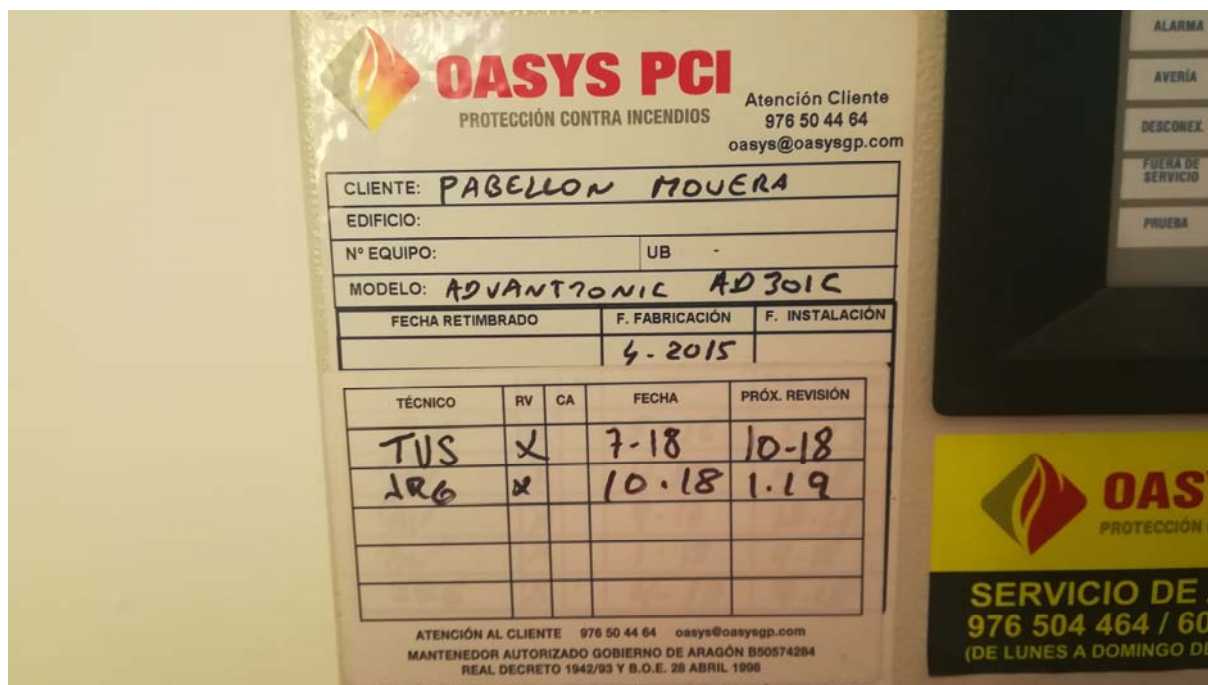 OASYS PCI
PROTECCIÓN CONTRA INCENDIOS
Atención Cliente
976 50 44 64
oasys@oasysgp.com
CLIENTE: PABELLON MOVERA
EDIFICIO:
Nº EQUIPO: UB -
MODELO: ADVANTRONIC AD301C
FECHA RETIMBRADO F. FABRICACIÓN F. INSTALACIÓN
4-2015
TÉCNICO RV CA FECHA PRÓX. REVISIÓN
TUS X 7-18 10-18
ARG X 10.18 1.19
ATENCIÓN AL CLIENTE 976 50 44 64 oasys@oasysgp.com
MANTENEDOR AUTORIZADO GOBIERNO DE ARAGÓN B50574284
REAL DECRETO 1942/93 Y B.O.E. 28 ABRIL 1998
ALARMA
AVERÍA
DESCONEX.
FUERA DE
SERVICIO
PRUEBA
OAS
PROTECCIÓN
SERVICIO DE
976 504 464 / 60
(DE LUNES A DOMINGO DE